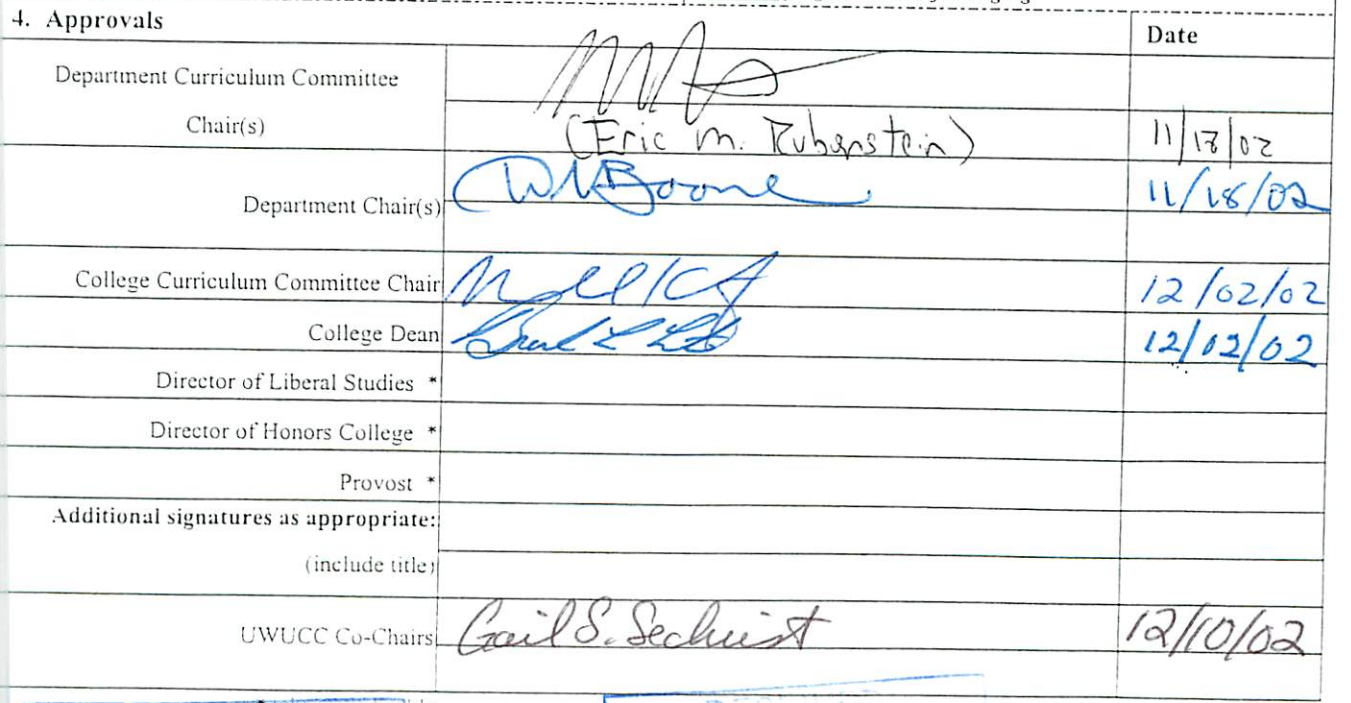 4. Approvals Date
Department Curriculum Committee
Chair(s) (Eric M. Rubenstein)
Department Chair(s) 11/18/02
College Curriculum Committee Chair 12/02/02
College Dean 12/02/02
Director of Liberal Studies *
Director of Honors College *
Provost *
Additional signatures as appropriate:
(include title)
UWUCC Co-Chairs Gail S. Sechrist 12/10/02